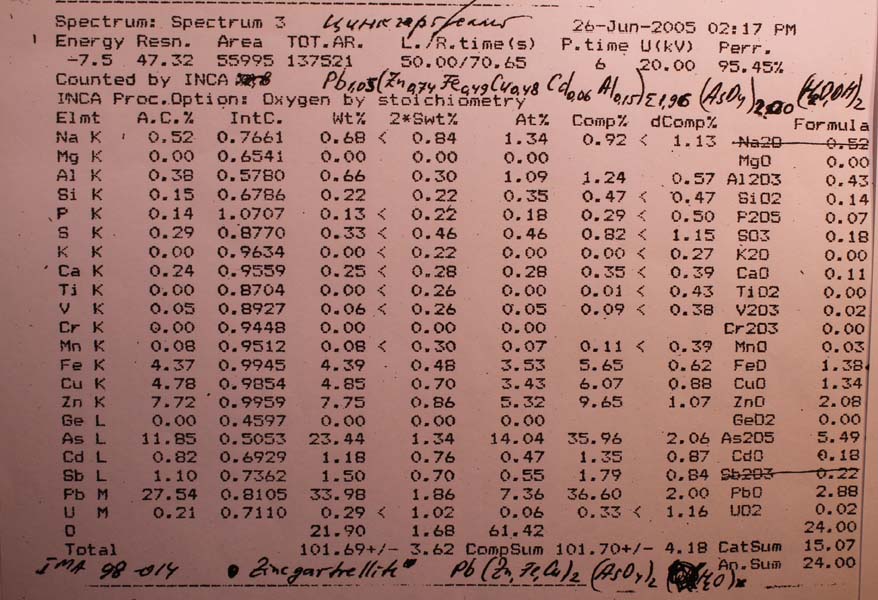 Spectrum: Spectrum 3 Цинкгартреллит 26-Jun-2005 02:17 PM
Energy Resn. Area TOT.AR. L./R.time(s) P.time U(kV) Perr.
-7.5 47.32 55995 137521 50.00/70.65 6 20.00 95.45%
Counted by INCA Pb1,03(Zn0,74Fe0,49Cu0,48Cd0,06Al0,15)Σ1,96(AsO4)2,00(H2O,OH)2
INCA Proc.Option: Oxygen by stoichiometry
Elmt A.C.% IntC. Wt% 2*Swt% At% Comp% dComp% Formula
Na K 0.52 0.7661 0.68 < 0.84 1.34 0.92 < 1.13 Na2O 0.52
Mg K 0.00 0.6541 0.00 0.00 0.00 MgO 0.00
Al K 0.38 0.5780 0.66 0.30 1.09 1.24 0.57 Al2O3 0.43
Si K 0.15 0.6786 0.22 0.22 0.35 0.47 < 0.47 SiO2 0.14
P K 0.14 1.0707 0.13 < 0.22 0.18 0.29 < 0.50 P2O5 0.07
S K 0.29 0.8770 0.33 < 0.46 0.46 0.82 < 1.15 SO3 0.18
K K 0.00 0.9634 0.00 < 0.22 0.00 0.00 < 0.27 K2O 0.00
Ca K 0.24 0.9559 0.25 < 0.28 0.28 0.35 < 0.39 CaO 0.11
Ti K 0.00 0.8704 0.00 < 0.26 0.00 0.01 < 0.43 TiO2 0.00
V K 0.05 0.8927 0.06 < 0.26 0.05 0.09 < 0.38 V2O3 0.02
Cr K 0.00 0.9448 0.00 0.00 0.00 Cr2O3 0.00
Mn K 0.08 0.9512 0.08 < 0.30 0.07 0.11 < 0.39 MnO 0.03
Fe K 4.37 0.9945 4.39 0.48 3.53 5.65 0.62 FeO 1.38
Cu K 4.78 0.9854 4.85 0.70 3.43 6.07 0.88 CuO 1.34
Zn K 7.72 0.9959 7.75 0.86 5.32 9.65 1.07 ZnO 2.08
Ge L 0.00 0.4597 0.00 0.00 0.00 GeO2 0.00
As L 11.85 0.5053 23.44 1.34 14.04 35.96 2.06 As2O5 5.49
Cd L 0.82 0.6929 1.18 0.76 0.47 1.35 0.87 CdO 0.18
Sb L 1.10 0.7362 1.50 0.70 0.55 1.79 0.84 Sb2O3 0.22
Pb M 27.54 0.8105 33.98 1.86 7.36 36.60 2.00 PbO 2.88
U M 0.21 0.7110 0.29 < 1.02 0.06 0.33 < 1.16 UO2 0.02
O 21.90 1.68 61.42 24.00
Total 101.69+/- 3.62 CompSum 101.70+/- 4.18 CatSum 15.07
An.Sum 24.00
IMA 98-014 "Zincgartrellite" Pb(Zn,Fe,Cu)2(AsO4)2